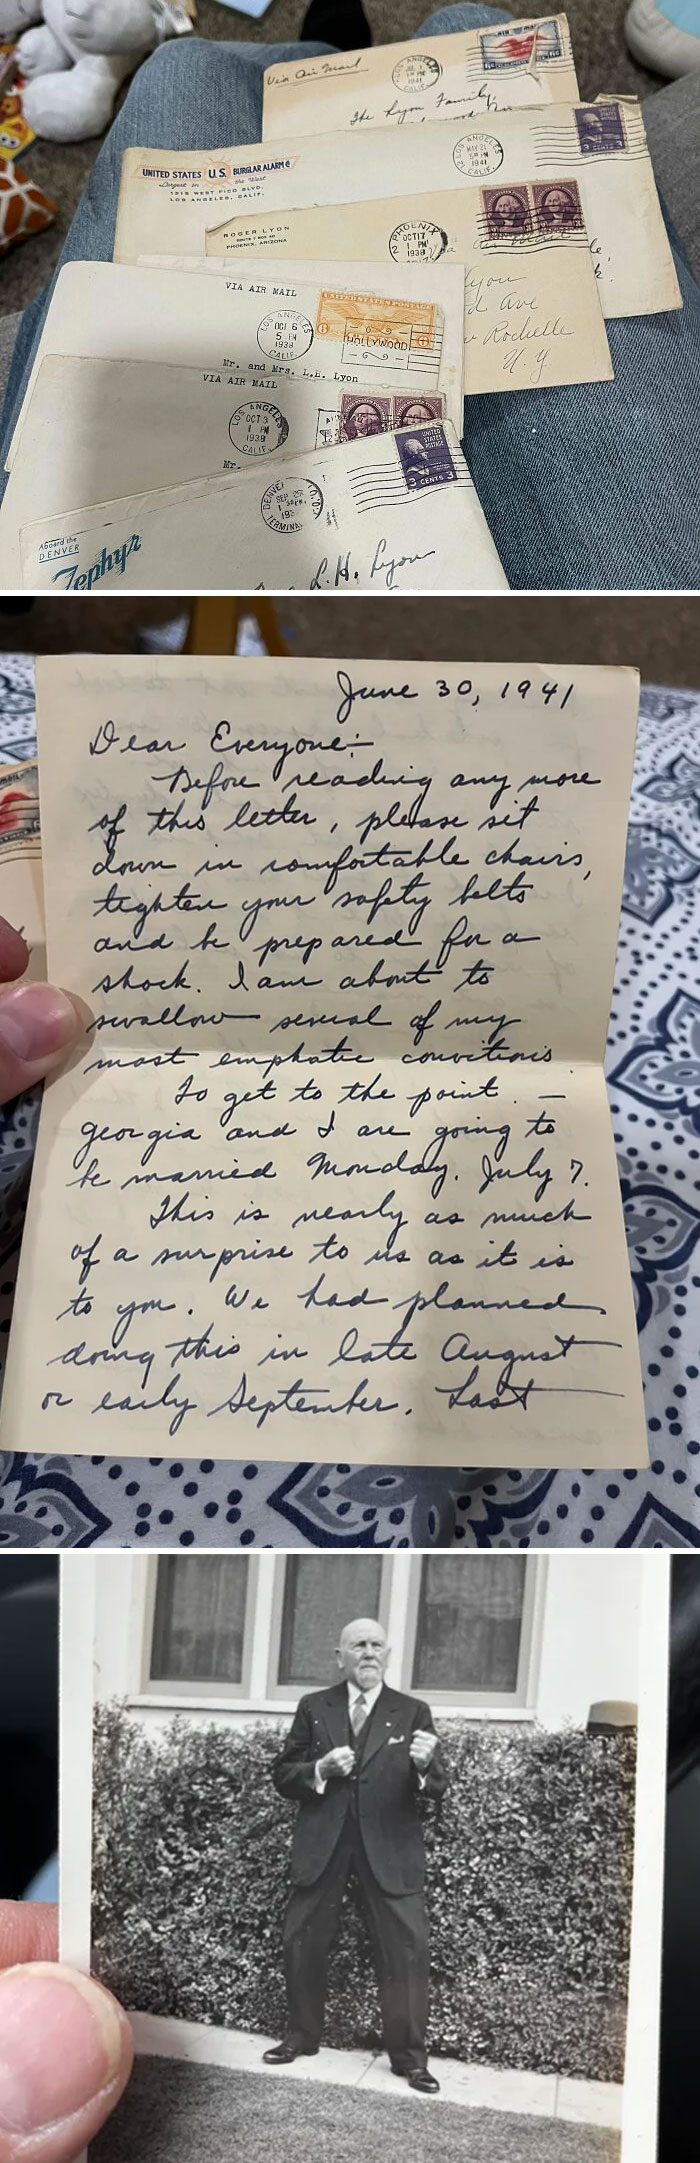 Via Air Mail
LOS ANGELES
1941
CALIF.
The Lyon Family,
AIR MAIL
6¢
UNITED STATES U.S. BURGLAR ALARM Co
Largest in the West
1919 WEST PICO BLVD.
LOS ANGELES, CALIF.
LOS ANGELES
MAY 21
5 PM
1941
CALIF.
3 CENTS 3
ROGER LYON
ROUTE 7 BOX
PHOENIX, ARIZONA
PHOENIX
OCT 17
1 PM
1938
Lyon
Ave
Rochelle
N.Y.
VIA AIR MAIL
LOS ANGELES
OCT 6
5 PM
1938
CALIF.
UNITED STATES POSTAGE
6 6
HOLLYWOOD
Mr. and Mrs. L.H. Lyon
VIA AIR MAIL
LOS ANGELES
OCT 3
1 PM
1938
CALIF.
Mr.
DENVER
SEP
TERMINAL
UNITED
STATES
POSTAGE
3 CENTS 3
Aboard the
DENVER
Zephyr
L.H. Lyon
June 30, 1941
Dear Everyone:—
Before reading any more
of this letter, please sit
down in comfortable chairs,
tighten your safety belts
and be prepared for a
shock. I am about to
swallow several of my
most emphatic convitions
To get to the point. —
Georgia and I are going to
be married Monday. July 7.
This is nearly as much
of a surprise to us as it is
to you. We had planned
doing this in late August
or early September. Last